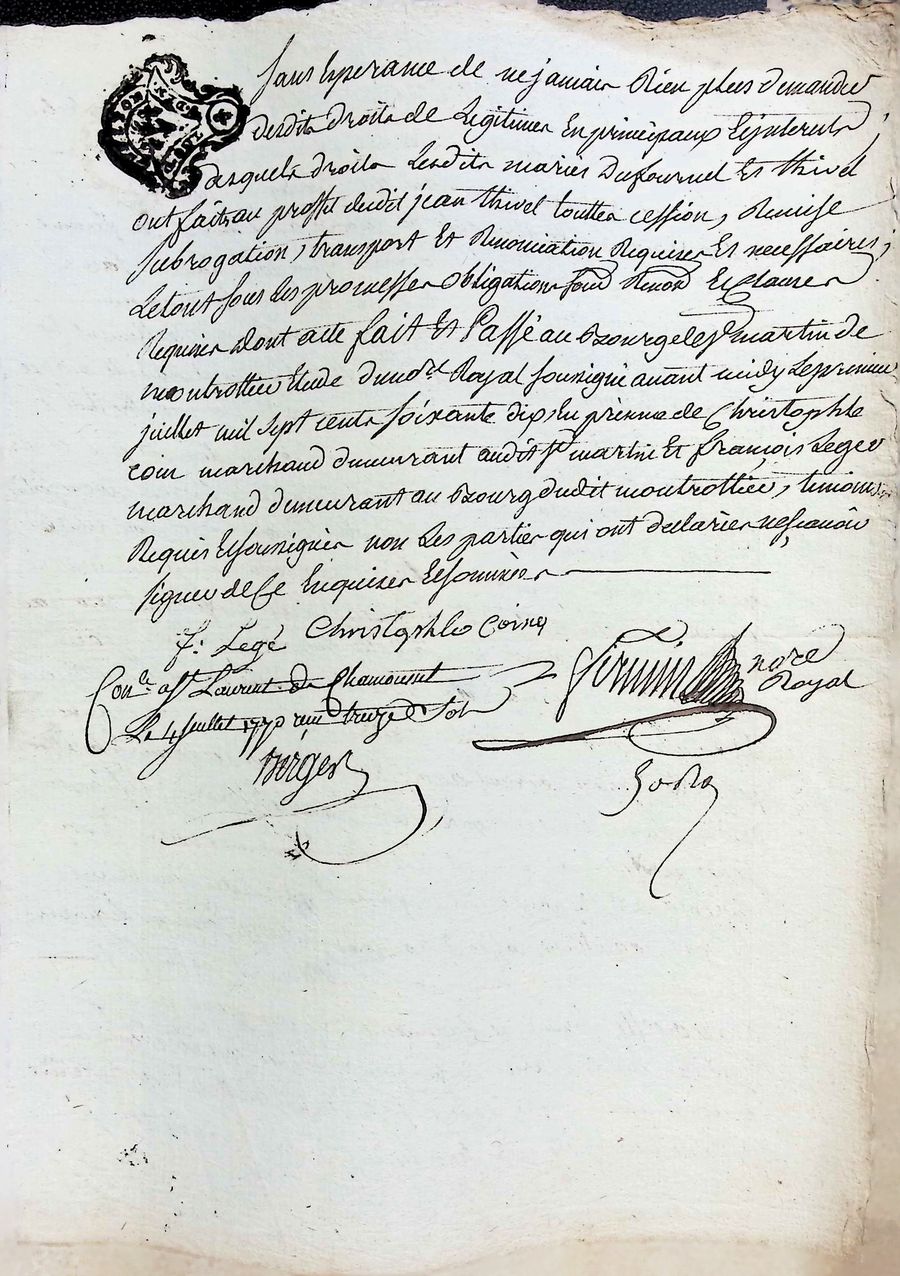 sans Esperance de ne jamais Rien plus demander
desdits droits de Legitimes En principaux Et jnterests ;
desquels droits Lesdits mariés Dufournel Et thivel
ont fait au proffit dudit jean thivel touttes cession, Remise
subrogation, transport Et Renonciation Requises Et necessaires ;
Le tout sous Les promesses obligations soud Renon Et clauses
Requises dont acte fait Et Passé au Bourg de st martin de
montrottier Etude du nore Royal soussigné avant midy Le premier
juillet mil sept cents soixante dix, En presence de Christophle
coin marchand demeurant audit st martin Et françois Leger
marchand demeurant au Bourg dudit montrottier, temoins
Requis Et soussignés non Les parties qui ont declarées ne sçavoir
signer de Ce Enquises Et sommées
f: Legé Christophle Coing
Conlé a st Laurent de Chamousset
Le 4 juillet 1770 reçu treize sols
Berger
nore
Royal